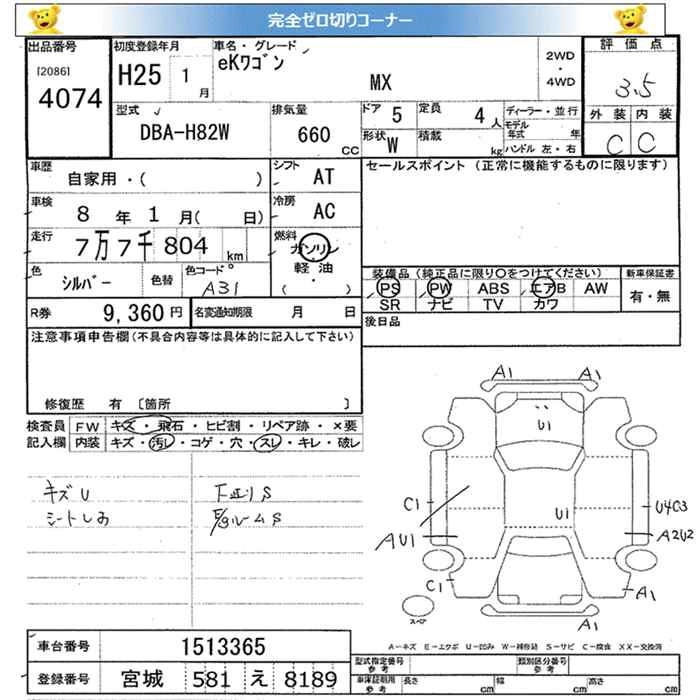 完全ゼロ切りコーナー
出品番号
[2086]
4074
初度登録年月
H25 1 月
車名・グレード
eKワゴン
MX
2WD
・
4WD
評価点
3.5
外装 内装
C C
型式
DBA-H82W
排気量
660 CC
ドア 5
定員 4 人
形状 W
積載 kg
ディーラー・並行
モデル年式 年
ハンドル 左・右
車歴
自家用・( )
シフト AT
セールスポイント (正常に機能するものに限ります)
車検
8 年 1 月( 日)
冷房 AC
走行
7万7千804 km
燃料
ガソリン
・
軽油
( ・ )
色
シルバー
色替
色コード
A31
装備品 (純正品に限り○をつけてください)
PS PW ABS エアB AW
SR ナビ TV カワ
新車保証書
有・無
R券 9,360 円
名変通知期限 月 日
後日品
注意事項申告欄(不具合内容等は具体的に記入して下さい)
修復歴 有 〔箇所 〕
検査員
記入欄
FW キズ・飛石・ヒビ割・リペア跡・×要
内装 キズ・汚れ・コゲ・穴・スレ・キレ・破レ
キズU
シートしみ
下廻りS
E/gルームS
A1 A1
U1
C1
U1
U4C3
AU1
A2U2
C1
A1
A1
スペア
A―キズ E―エクボ U―凹み W―補修跡 S―サビ C―腐食 XX―交換済
車台番号 1513365
登録番号 宮城 581 え 8189
型式指定番号
参考
類別区分番号
参考
車庫証明用
参考
長さ cm 幅 cm 高さ cm